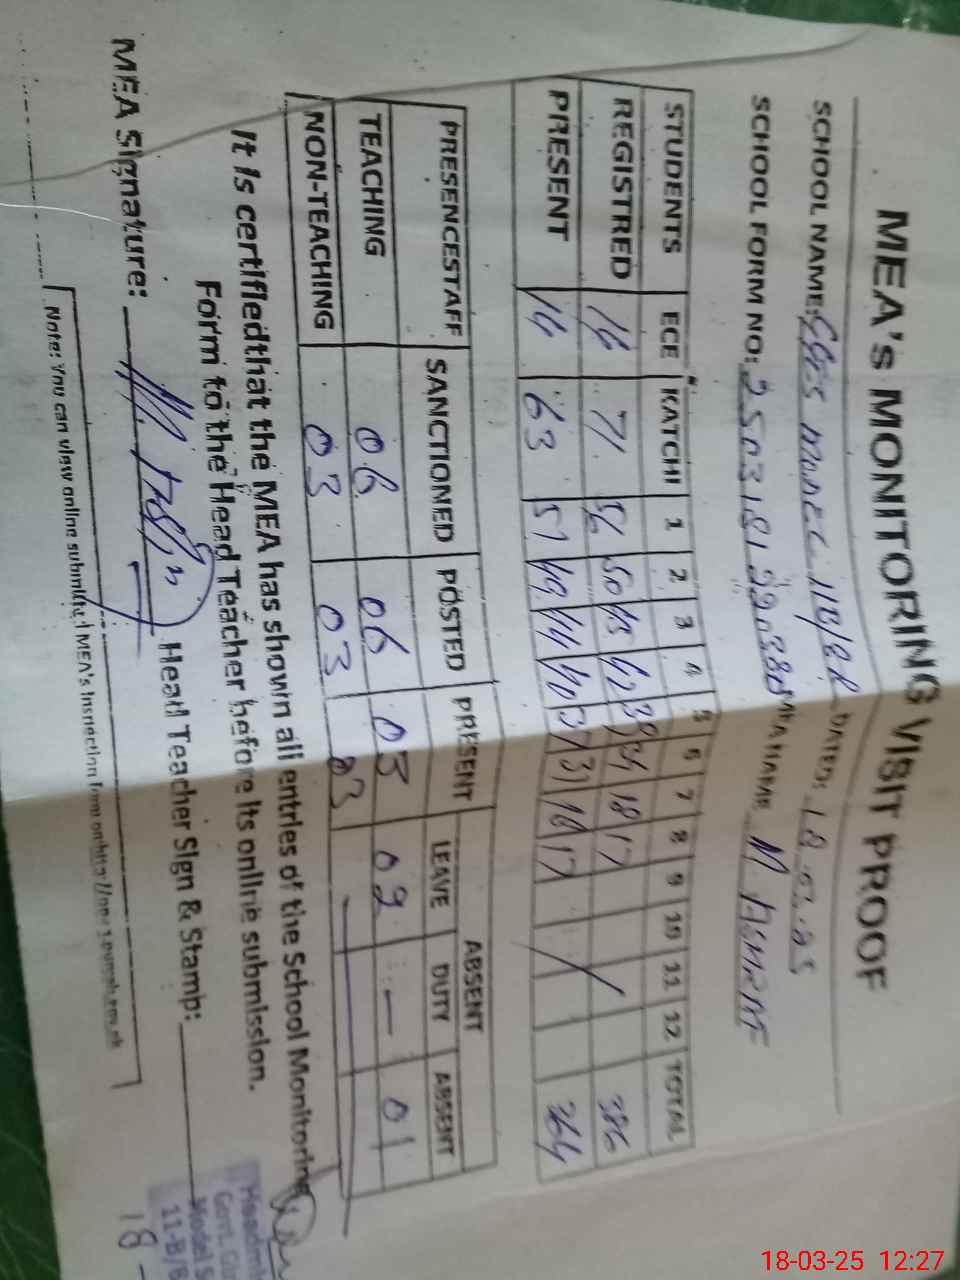 MEA's MONITORING VISIT PROOF
SCHOOL NAME: GGES MODEL 11B/8R DATED: 18.03.25
SCHOOL FORM NO: NAME M. ASHRAF
STUDENTS ECE KATCHI 1 2 3 4 5 6 7 8 9 10 11 12 TOTAL
REGISTRED 14 71 56 50 45 42 39 34 18 17 386
PRESENT 14 63 51 49 44 40 37 31 18 17 364
PRESENCESTAFF SANCTIONED POSTED PRESENT ABSENT
LEAVE DUTY ABSENT
TEACHING 06 06 03 02 — 01
NON-TEACHING 03 03 03
It is certifiedthat the MEA has shown all entries of the School Monitoring
Form to the Head Teacher before its online submission.
MEA Signature: Head Teacher Sign & Stamp:
Note: You can view online submitted MEA's Inspection form on
Govt.
Model
11-B/8
18
18-03-25 12:27